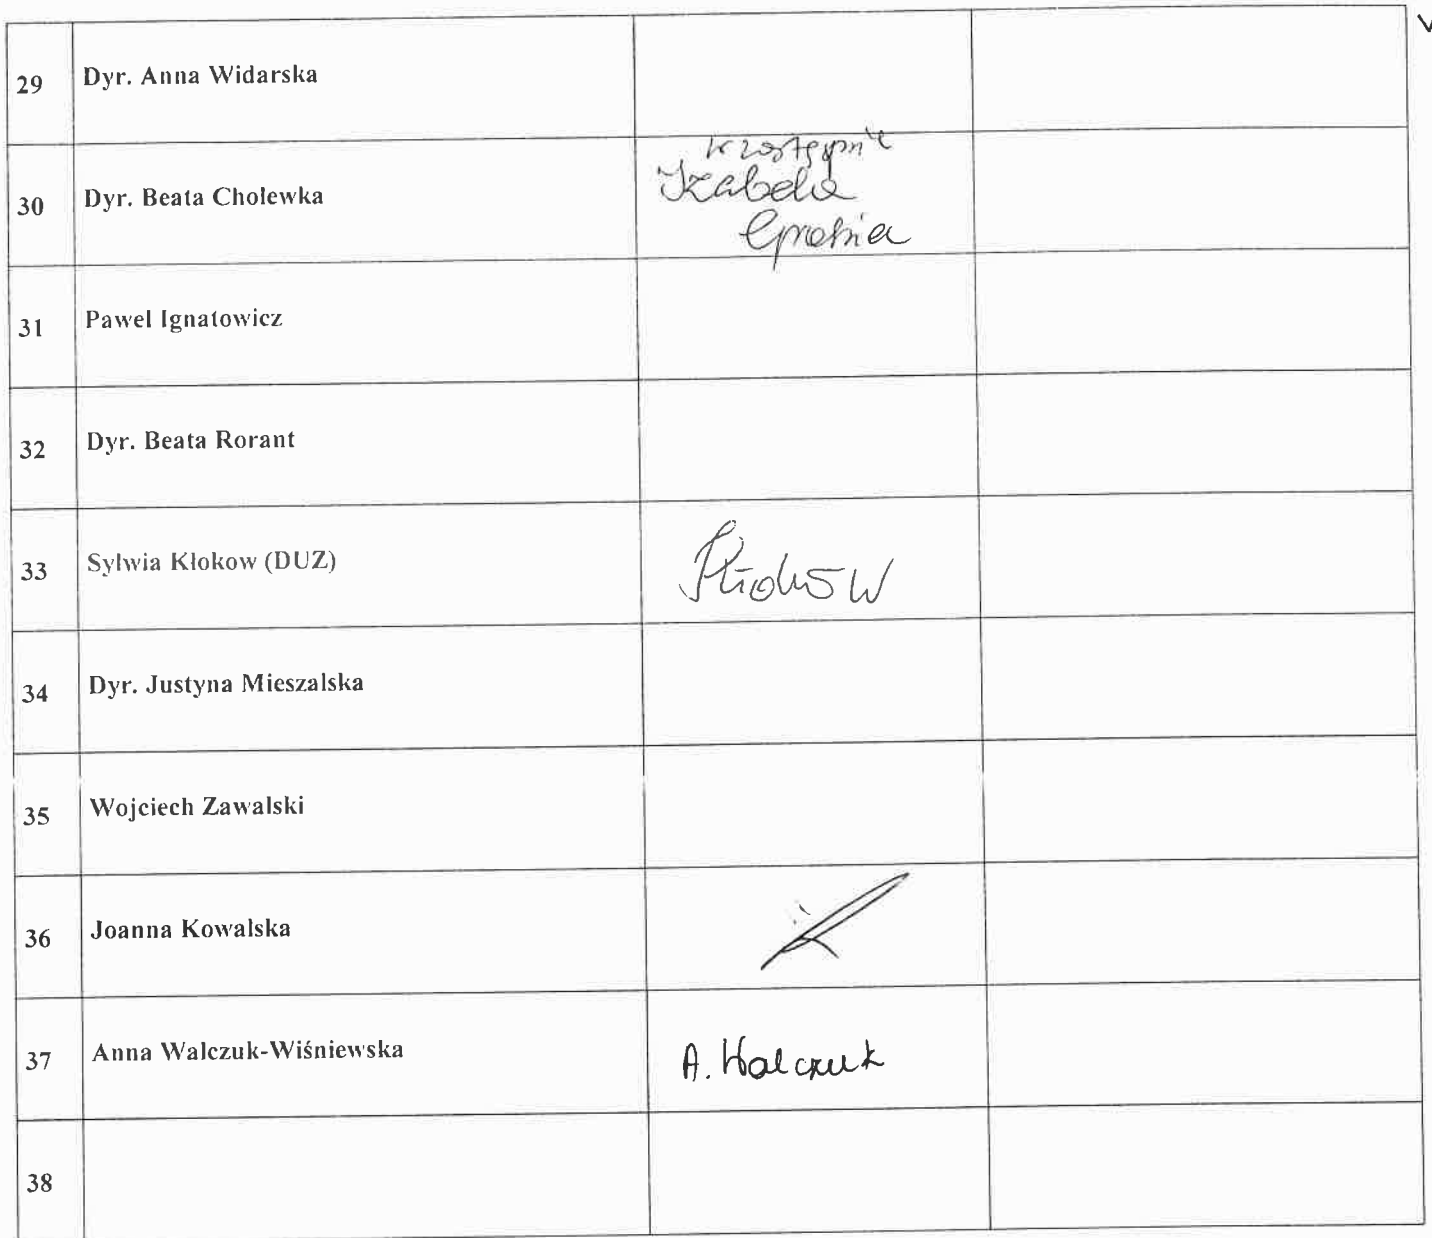 29 Dyr. Anna Widarska
30 Dyr. Beata Cholewka
Izabela
31 Pawel Ignatowicz
32 Dyr. Beata Rorant
33 Sylwia Kłokow (DUZ)
34 Dyr. Justyna Mieszalska
35 Wojciech Zawalski
36 Joanna Kowalska
37 Anna Walczuk-Wiśniewska A. Walczuk
38